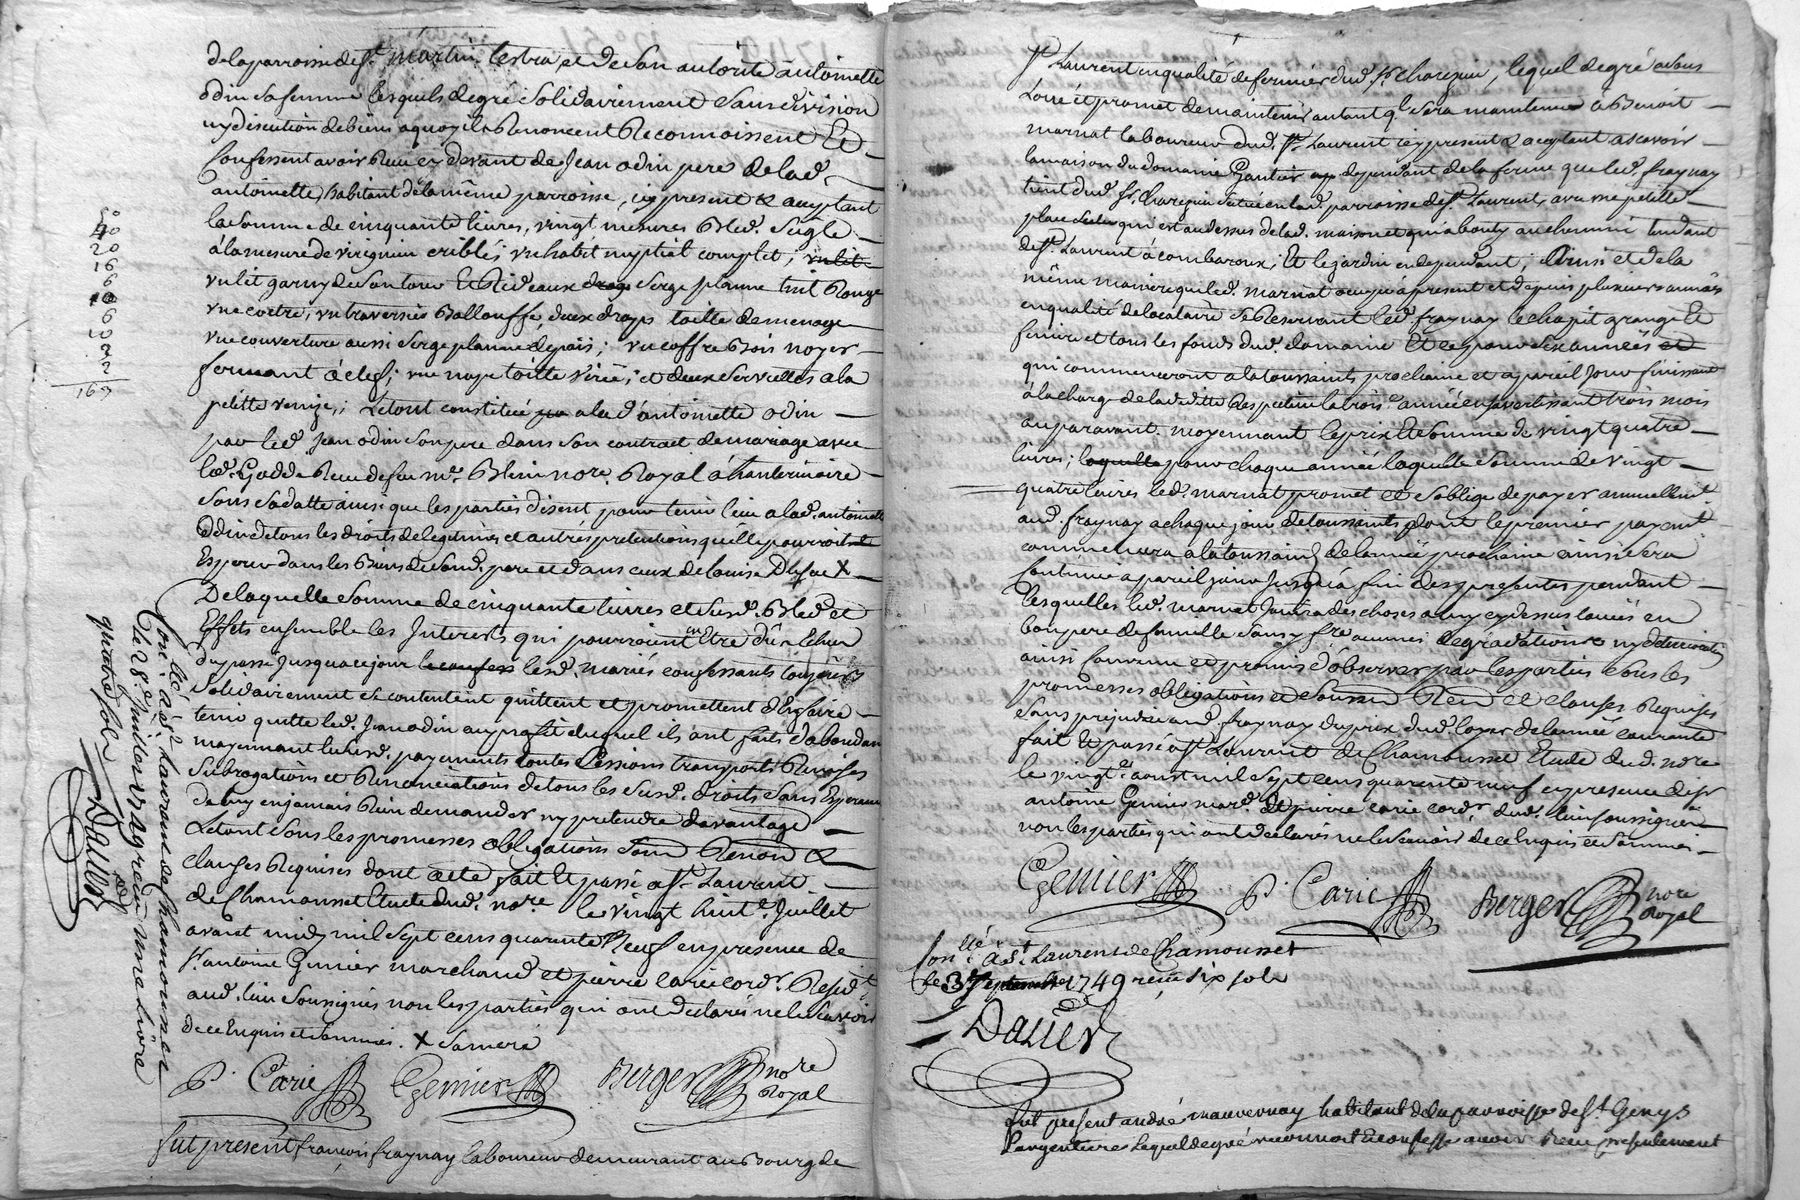 de la parroisse de St. martin Lestra, et de son autorité antoinette
odin sa femme lesquels de gré solidairement sans division
ny discution de biens a quoy ils Renoncent Reconnoissent Et
Confessent avoir Receu cy devant de Jean odin pere de lad.
antoinette, habitant de la même parroisse, icy present & aceptant
la somme de cinquante livres, vingt mesures Bled. Seigle
à la mesure de virignieu criblés, un habit nuptial complet, un lit
un lit garny de son tour Et Rideaux Serge planne teint Rouge
une coëtre, un traversier Ballouffe, deux draps toille de menage
une couverture aussi Serge planne de païs; un coffre Bois noyer
fermant à clef; une nape toille et deux Serviettes a la
petitte venize; Le tout constitué a lad. antoinette odin
par led. Jean odin son pere dans son contrat de mariage avec
led. Godde Receu de feu me. Blein nore. Royal à hauterivoire
sous sa datte ainsi que les parties disent pour tenir lieu a lad. antoinette
Odin de tous les droits de legitimes et autres pretentions qu'elle pourroit
Esperer dans les Biens de sond. pere et dans ceux de Louise X
De laquelle somme de cinquante livres et susd. Bled. et
Effets ensemble les Interests qui pourroient en Etre dûs
du passé Jusqua ce jour lesd. mariés confessants toujours
Solidairement se contentent quittent et promettent d'En faire
tenir quitte led. Jean odin au profit duquel ils ont faits d'abondan
moyennant lesusd. payements toutes Cessions transports Remises
Subrogations et Renonciations de tous les susd. droits Sans Esperance
de luy en jamais Rien demander ny pretendre davantage
Le tout sous les promesses obligations Soum. Renon. &
Clauses Requises dont acte fait Et passé a St. Laurent
de Chamousset Etude dud. nore. le vingt huite. Juillet
avant midy mil sept cens quarente Neuf en presence de
sr. antoine Gemier marchand et pierre carie cordr. Residt.
aud. lieu Soussignés non les parties qui ont declarés ne le scavoir
de ce Enquis et Sommées. X Sa mere
P. Carie Gemier Berger nore
Royal
fut present françois fraynay laboureur demeurant au Bourg de
20
16
6
6
10
2
2
Conllé. à St. Laurent de Chamousset
la 28e. Juillet 1749 receu une Livre
quatre sols
Dauier
St. Laurent en qualité de fermier dud. Sr. Charezieu, lequel de gré a donné
Loué et promet de maintenir autant ql. sera maintenu à Benoit
marnat laboureur dud. St. Laurent icy present & aceptant a scavoir
la maison du domaine Gautier dependant de la ferme que led. fraynay
tient dud. Sr. Charezieu située en lad. parroisse de St. Laurent, avec une petitte
place qui est au dessus de lad. maison et qui abouty au chemin tendant
de St. Laurent à combaroux; Et le jardin en dependant; Ainsi et de la
même maniere que led. marnat occupe a present et depuis plusieurs années
en qualité de locataire Se Reservant led. fraynay le chapit grange Et
feniere et tous les fonds dud. domaine Et ce pour Six années
qui commenceront a la toussaints prochaine et a pareil Jour finissant
à la charge de lad. ditte respective la troise. année en s'avertissant trois mois
auparavant moyennant le prix Et somme de vingt quatre
livres; laquelle pour chaque année laquelle somme de vingt
quatre livres led. marnat promet et s'oblige de payer annuellement
aud. fraynay a chaque jour de toussaints dont le premier payemt.
commencera a la toussaints de l'année prochaine ainsi sera
continué a pareil jour Jusqua fin des presentes pendant
Lesquelles led. marnat Jouira des choses a luy cy dessus loüées en
bon pere de famille sans y fre. aucunes degradations ny deterioraõn
ainsi convenu et promis d'observer par les parties sous les
promesses obligations et Soum. Ren. et clauses Requises
sans prejudice aud. fraynay du prix dud. loyer de l'année courante
fait Et passé a St. Laurent de Chamousset Etude dud. nore
le vingte. aoust mil sept cens quarente neuf en presence de sr
antoine Gemier mard. Et pierre carie cordr. dud. lieu soussignés
non les parties qui ont declarés ne le scavoir de ce Enquis et Sommées
Gemier P. Carie Berger nore
Royal
Conllé. à St. Laurent de Chamousset
le 3 Septembre 1749 receu six sols
Dauier
fut present andré mauvernay habitant de la parroisse de St. Genys
L'argentiere Lequel de gré reconnoit Et confesse avoir Receu presentement